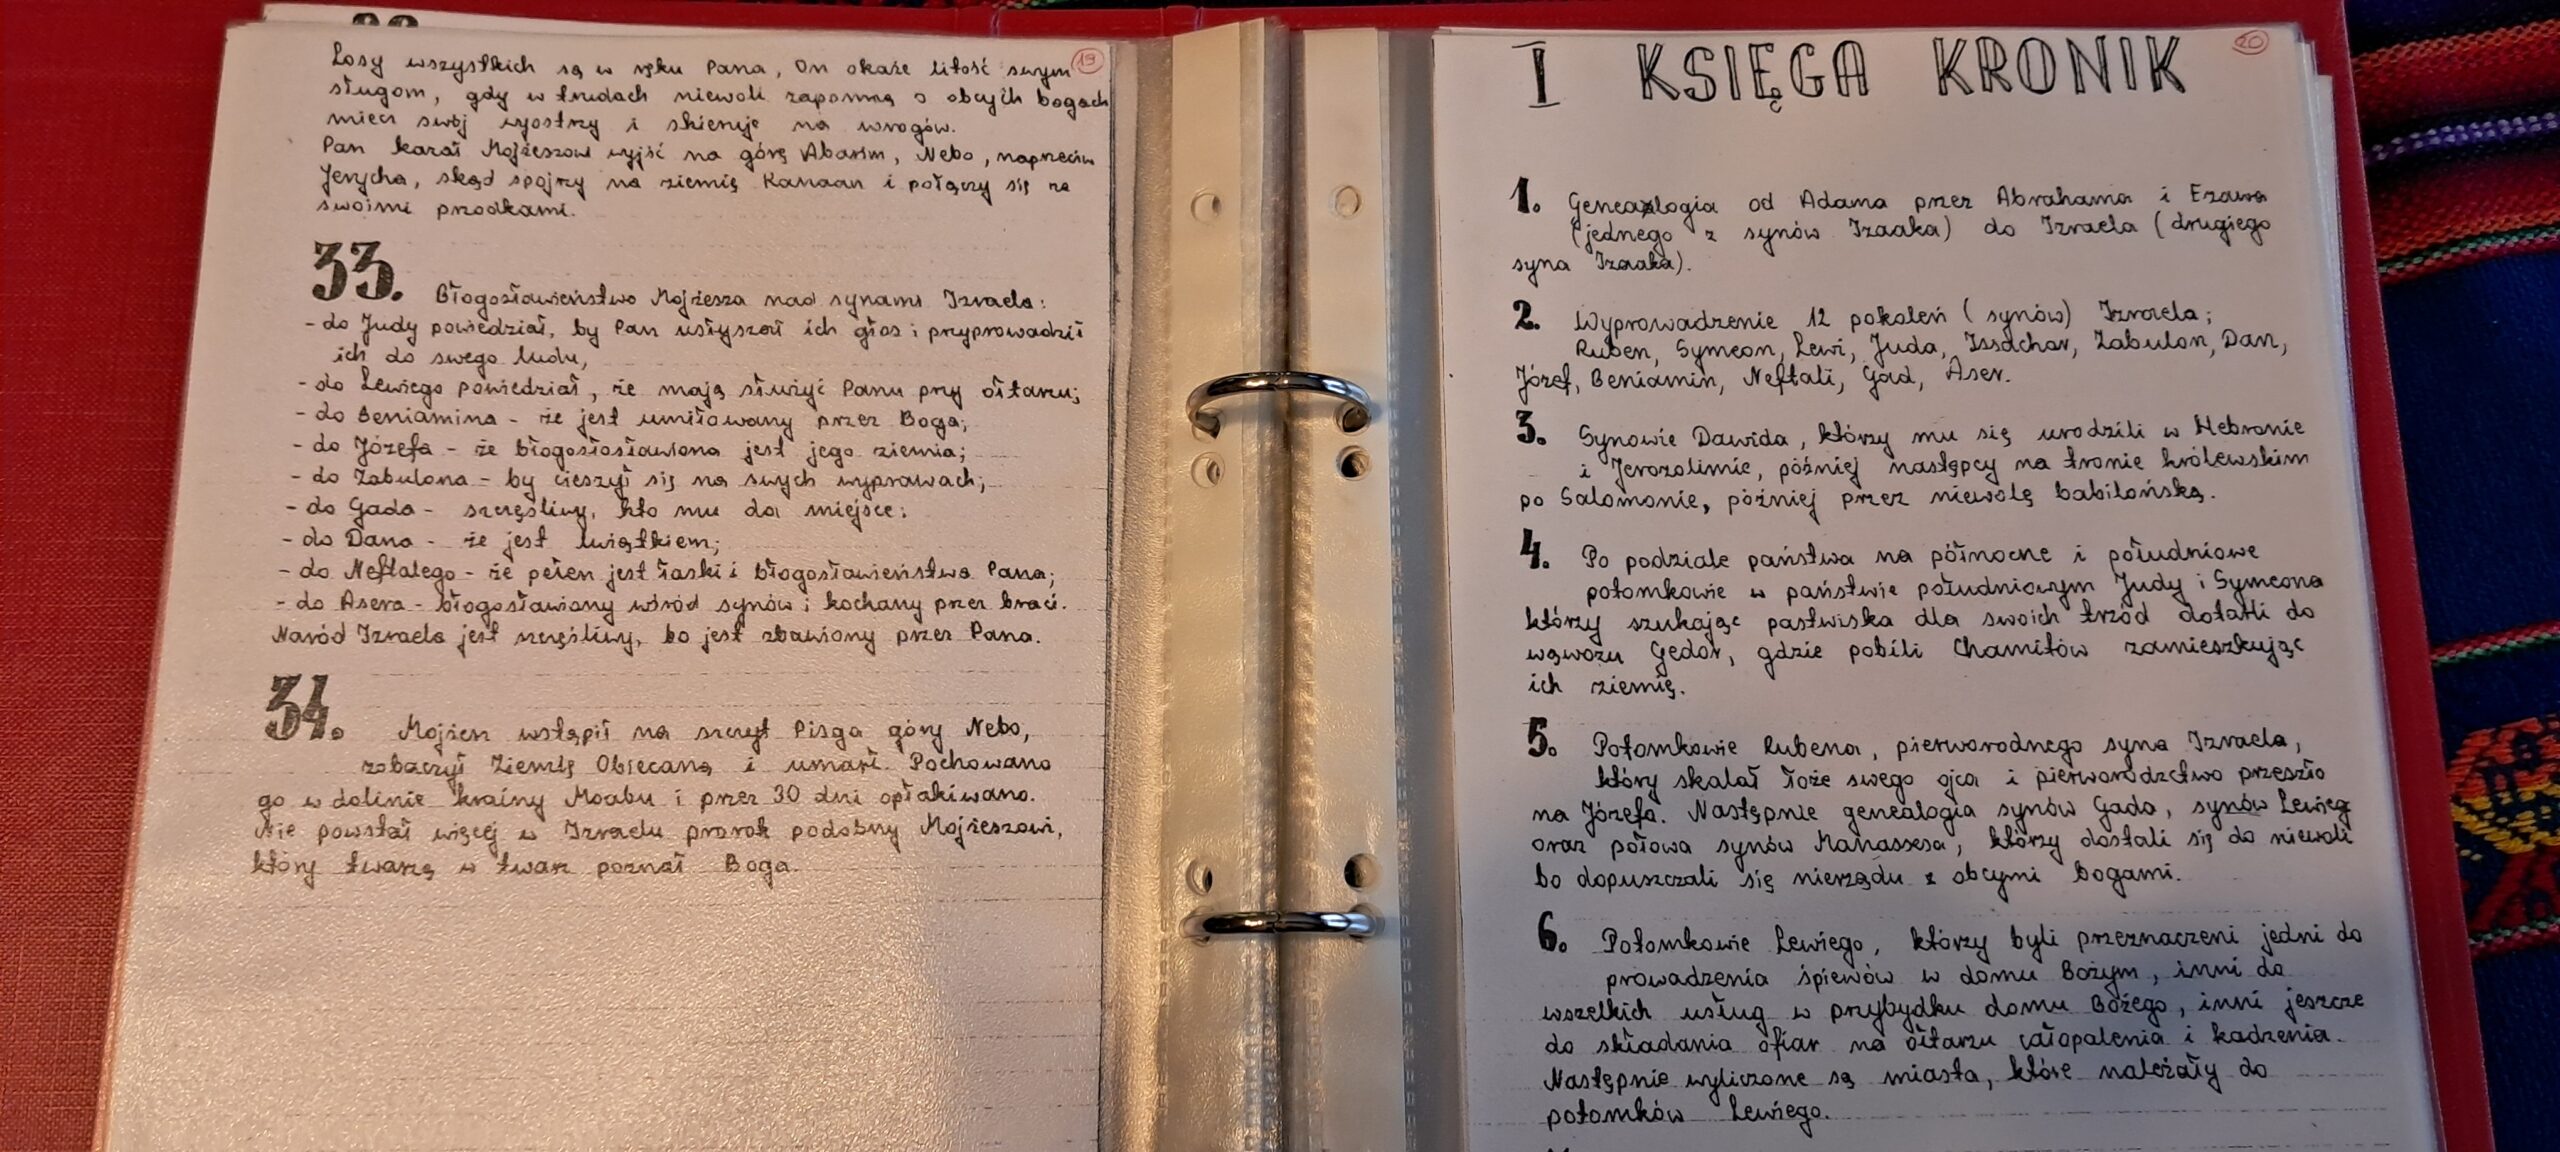 19
Losy wszystkich są w ręku Pana, On okaże litość swym
sługom, gdy w trudach niewoli zapomną o obcych bogach
miecz swój wyostrzy i skieruje na wrogów.
Pan kazał Mojżeszowi wyjść na górę Abarim, Nebo, naprzeciw
Jerycha, skąd spojrzy na ziemię Kanaan i połączy się ze
swoimi przodkami.
33. Błogosławieństwo Mojżesza nad synami Izraela:
- do Judy powiedział, by Pan usłyszał ich głos i przyprowadził
ich do swego ludu,
- do Lewiego powiedział, że mają służyć Panu przy ołtarzu;
- do Beniamina - że jest umiłowany przez Boga;
- do Józefa - że błogosłosławiona jest jego ziemia;
- do Zabulona - by cieszył się na swych wyprawach;
- do Gada - szczęśliwy, kto mu da miejsce;
- do Dana - że jest lwiątkiem;
- do Neftalego - że pełen jest łaski i błogosławieństwa Pana;
- do Asera - błogosławiony wśród synów i kochany przez braci.
Naród Izraela jest szczęśliwy, bo jest zbawiony przez Pana.
34. Mojżesz wstąpił na szczyt Pisga góry Nebo,
zobaczył Ziemię Obiecaną i umarł. Pochowano
go w dolinie krainy Moabu i przez 30 dni opłakiwano.
Nie powstał więcej w Izraelu prorok podobny Mojżeszowi,
który twarzą w twarz poznał Boga.
20
I KSIĘGA KRONIK
1. Genealogia od Adama przez Abrahama i Ezawa
(jednego z synów Izaaka) do Izraela (drugiego
syna Izaaka).
2. Wyprowadzenie 12 pokoleń (synów) Izraela;
Ruben, Symeon, Lewi, Juda, Issachar, Zabulon, Dan,
Józef, Beniamin, Neftali, Gad, Aser.
3. Synowie Dawida, którzy mu się urodzili w Hebronie
i Jerozolimie, później następcy na tronie królewskim
po Salomonie, później przez niewolę babilońską.
4. Po podziale państwa na północne i południowe
potomkowie w państwie południowym Judy i Symeona
którzy szukając pastwiska dla swoich trzód dotarli do
wąwozu Gedor, gdzie pobili Chamitów zamieszkując
ich ziemię.
5. Potomkowie Rubena, pierworodnego syna Izraela,
który skalał łoże swego ojca i pierworodztwo przeszło
na Józefa. Następnie genealogia synów Gada, synów Lewieg
oraz połowa synów Manassesa, którzy dostali się do niewoli
bo dopuszczali się nierządu z obcymi bogami.
6. Potomkowie Lewiego, którzy byli przeznaczeni jedni do
prowadzenia śpiewów w domu Bożym, inni do
wszelkich usług w przybydku domu Bożego, inni jeszcze
do składania ofiar na ołtarzu całopalenia i kadzenia.
Następnie wyliczone są miasta, które należały do
potomków Lewiego.